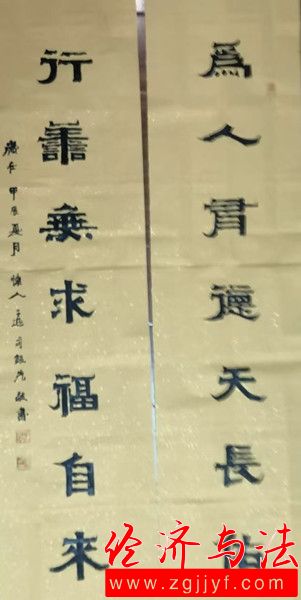 爲人有德天長佑
行善無求福自來
歲在甲辰夏月
敬書
经济与法
www.zgjjyf.com